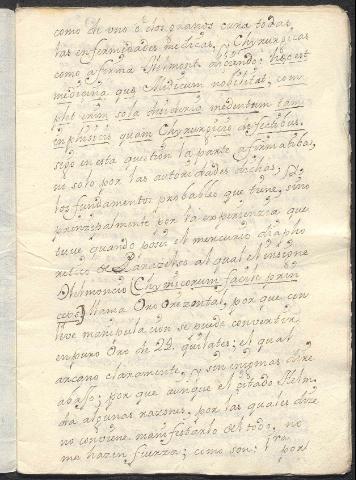 como de uno ò dos granos cura todas
las enfermedades medicas, y Chyrurgicas
como afirma Helmont diciendo: hęc est
medicina quę Medicum nobilitat, com
plet enim sola desideria medentum tam
in phisicis quam Chyrurgicis defectibus.
sigo en esta question la parte afirmatiba,
no solo por las autoridades dichas, y
los fundamentos probables que tiene, sino
prinzipalmente por la experienzia que
tuve quando posei el mercurio diapho
retico de Parazelso al qual el insigne
Helmoncio (Chymicorum facile prin
ceps) llama Oro Orezontal, por que con
leve manipulacion se puede convertir
en puro Oro de 23. quilates; el qual
arcano claramente, y sin enigmas dire
abaxo; por que aunque el citado Helm.
da algunas razones, por las quales dize
no conviene manifestarlo de todo, no
me hazen fuerza; como son: 1ra por